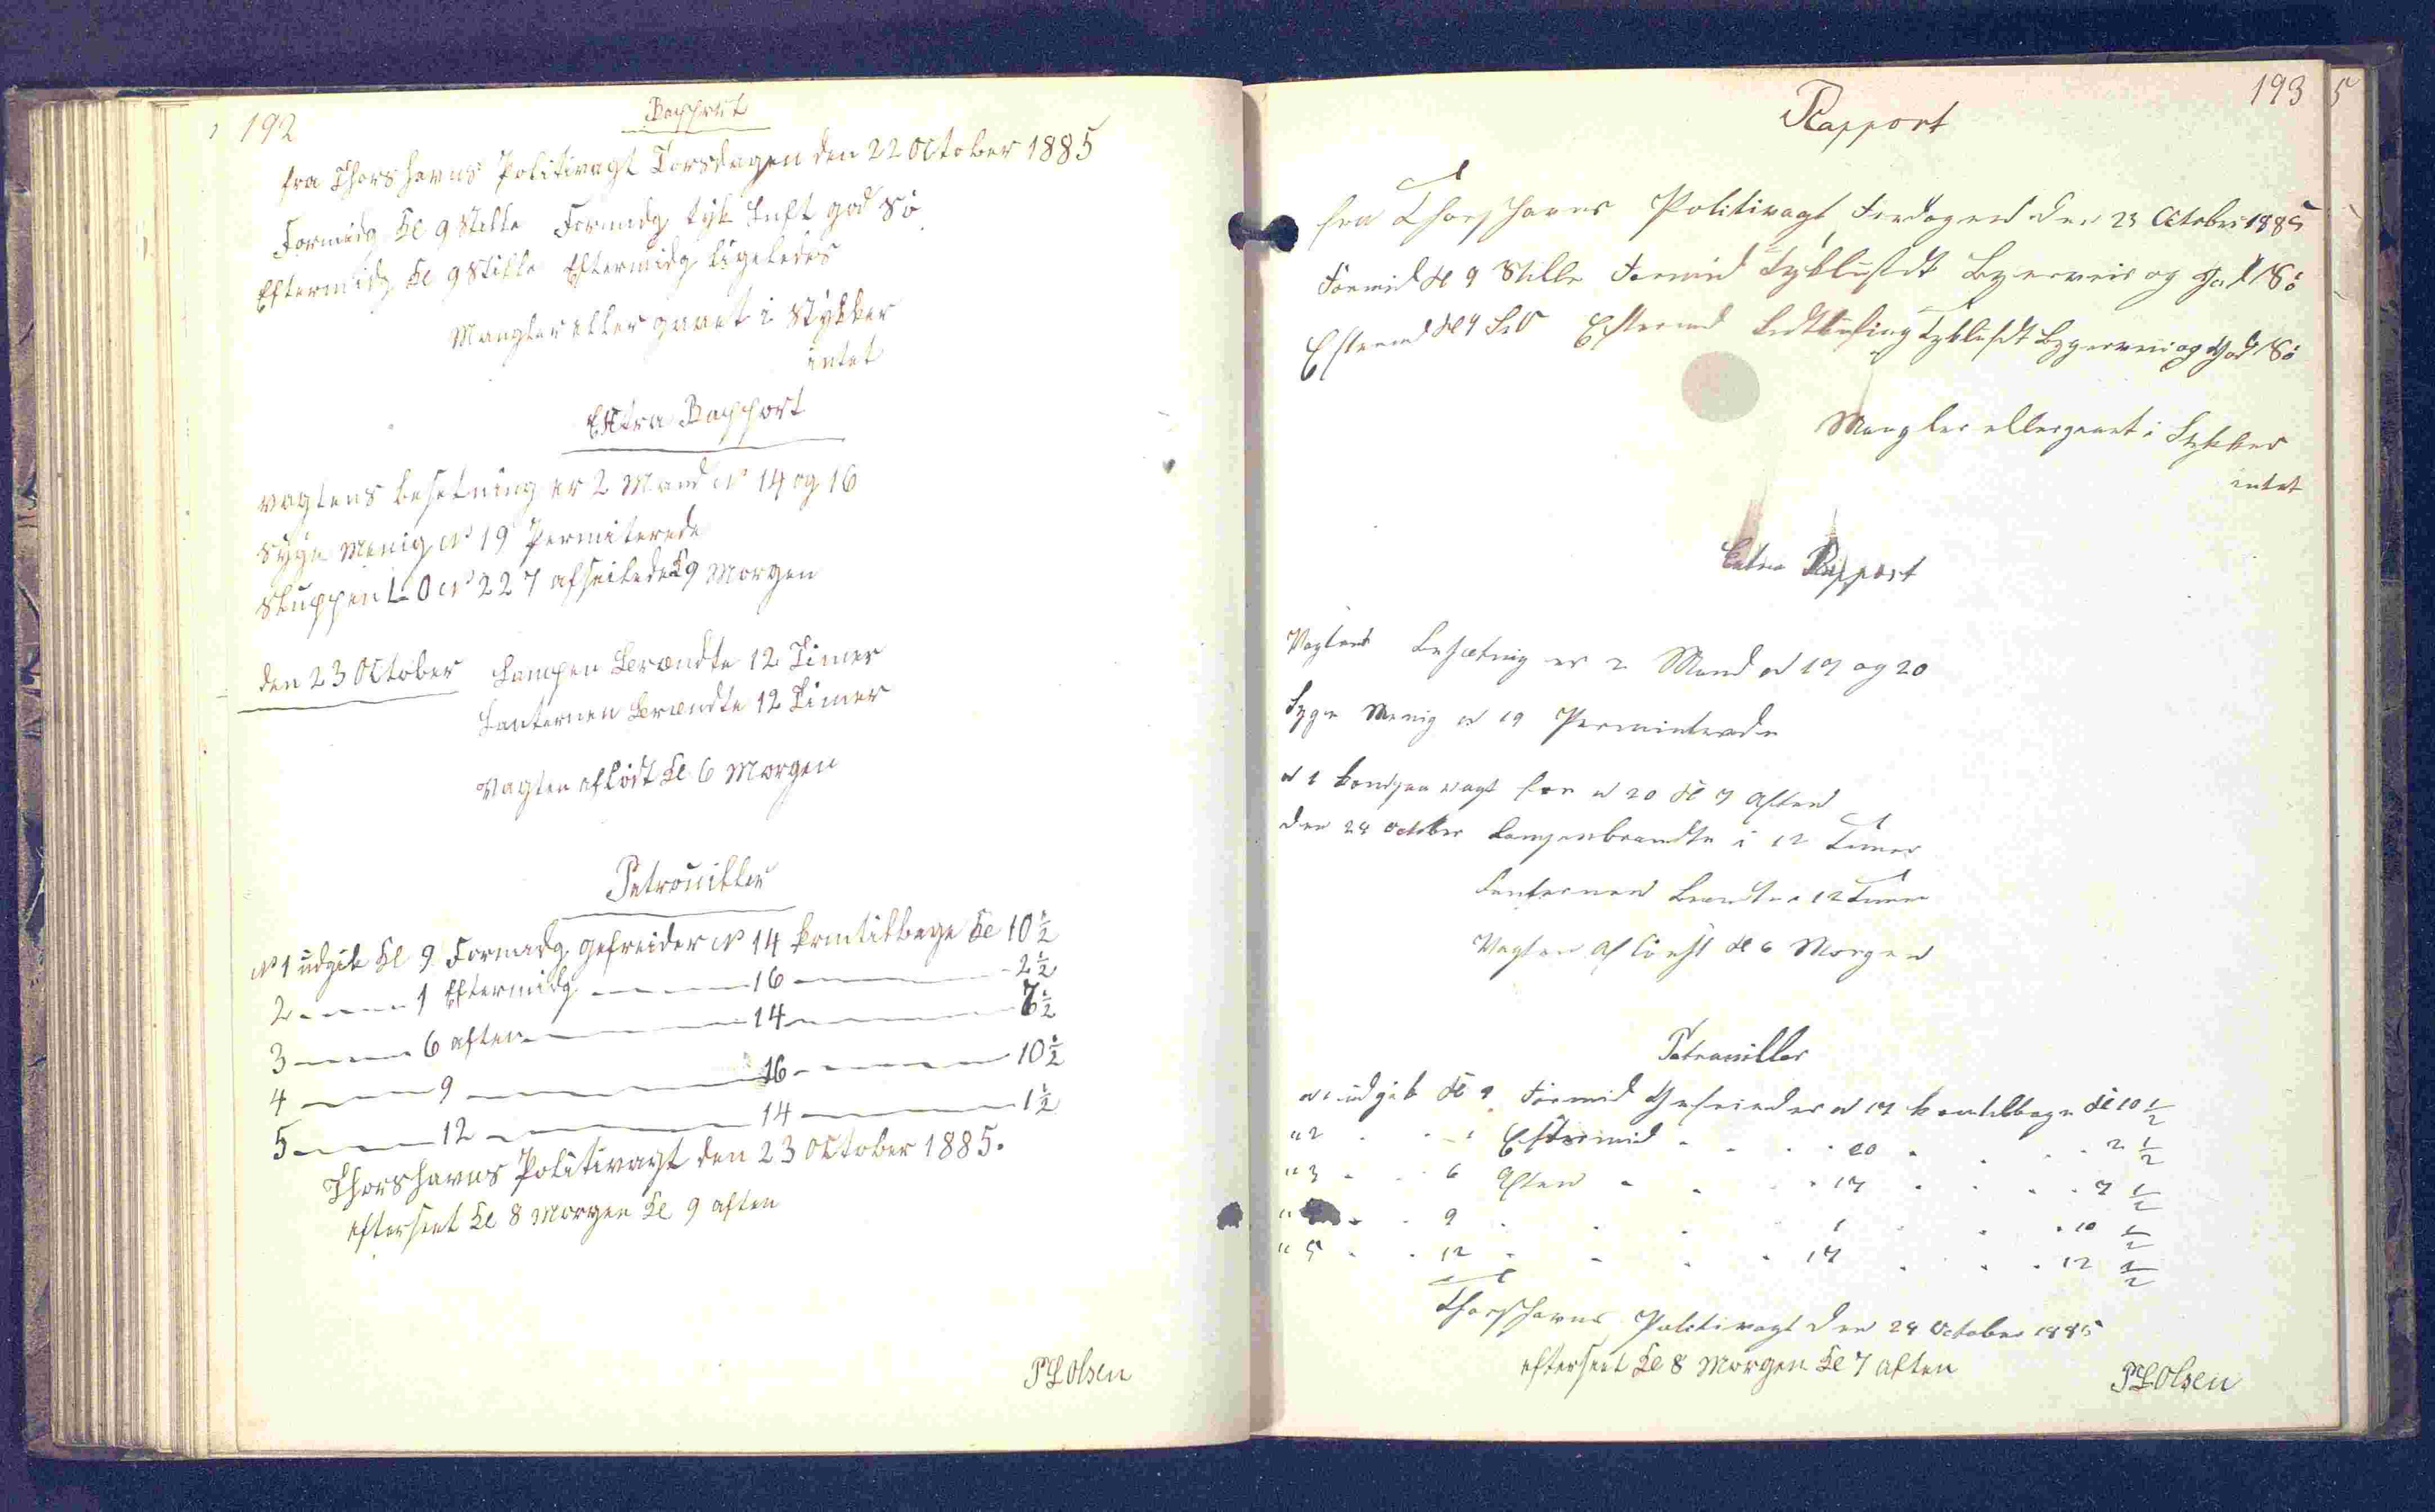 192
Rapport
fra Thorshavns Politivagt Torsdagen den 22 October 1885
Formidg Kl 9 Stille Formidg tÿk Luft god Sö
Eftermidg Kl 9 Stille Eftermidg ligeledes
Mangler eller gaaet i Stÿkker
intet
Extra Rapport
vagtens besetning er 2 Mand No 14 og 16
Syge Menig No 19 Permiterede
Sluppen L O No 227 afseilede Kl 9 Morgen
den 23 October Lampen Brændte 12 Timer
Lanternen Brændte 12 Timer
Vagten aflöst Kl 6 Morgen
Patrouiller
No 1 udgik Kl 9 Formidg gefreider No 14 kom tilbage Kl 10 ½
2 1 Eftermidg 16 2 ½
3 6 aften 14 7 ½
4 9 16 10 ½
5 12 14 1 ½
Thorshavns Politivagt den 23 October 1885.
efterseet Kl 8 Morgen Kl 9 aften
P L Olsen
193
5
Rapport
fra Thorshavns Politivagt Fredagen den 23 October 1885
Formid Kl 9 Stille Formid Tykluft Bygerveir og God Sö
Eftermd Kl 9 Eftermd Tykluft Bygerveir og God Sö
Mangler eller gaaet i Stykker
intet
Extra Rapport
Vagtens besætning er 2 Mand No 17 og 20
Syge Menig No 19 Perminterede
No 1 vagt for No 20 Kl 7 Aften
den 24 October Lampen brændte i 12 Timer
Lanternen Brændte 12 Timer
Vagten Aflöest Kl 6 Morgen
Patrouiller
No 1 udgik Kl 9 Formid Gefreider No 17 kom tilbage Kl 10 ½
" 2 1 Eftermid 20 2 ½
" 3 6 Aften 17 7 ½
" 9 1 10 ½
" 5 12 17 12 ½
Thorshavns Politivagt den 24 October 1885
efterseet Kl 8 Morgen Kl 7 aften
P L Olsen